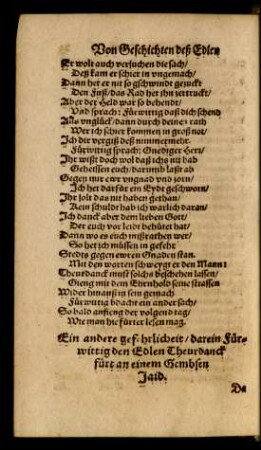 Von Geschichten deß Edlen
Er wolt auch versuchen die sach/
Deß kam er schier in vngemach/
Dann het er nit so gschwindt gezuckt
Den Fuß/ das Rad het ihn zertruckt/
Aber der Held war so behendt/
Vnd sprach: Fürwittig daß dich schend
Alls vnglück/ dann durch deinen rath
Wer ich schier kommen in groß not/
Ich dir vergiß deß nimmermehr.
Fürwittig sprach: Gnediger Herr/
Ihr wißt doch wol daß ichs nit hab
Geheissen euch/ darumb laßt ab
Gegen mir ewr vngnad vnd zorn/
Ich het darfür ein Eydt geschworn/
Ihr solt das nit haben gethan/
Kein schuldt hab ich warlich daran/
Ich danck aber dem lieben Gott/
Der euch vor leidt behütet hat/
Dann wo es euch mißrathen wer/
So het ich müssen in gefehr
Stedts gegen ewren Gnaden stan.
Mit den worten schweygt er den Mann:
Theurdanck must solchs beschehen lassen/
Gieng mit dem Ehrnhold seine strassen
Wider hinauß in sein gemach
Fürwittig bdacht ein ander sach/
So bald anfieng der volgend tag/
Wie man hie fürter lesen mag.
Ein andere gefehrlicheit/ darein Für-
wittig den Edlen Theurdanck
fürt an einem Gembsen
Jaid.
Da